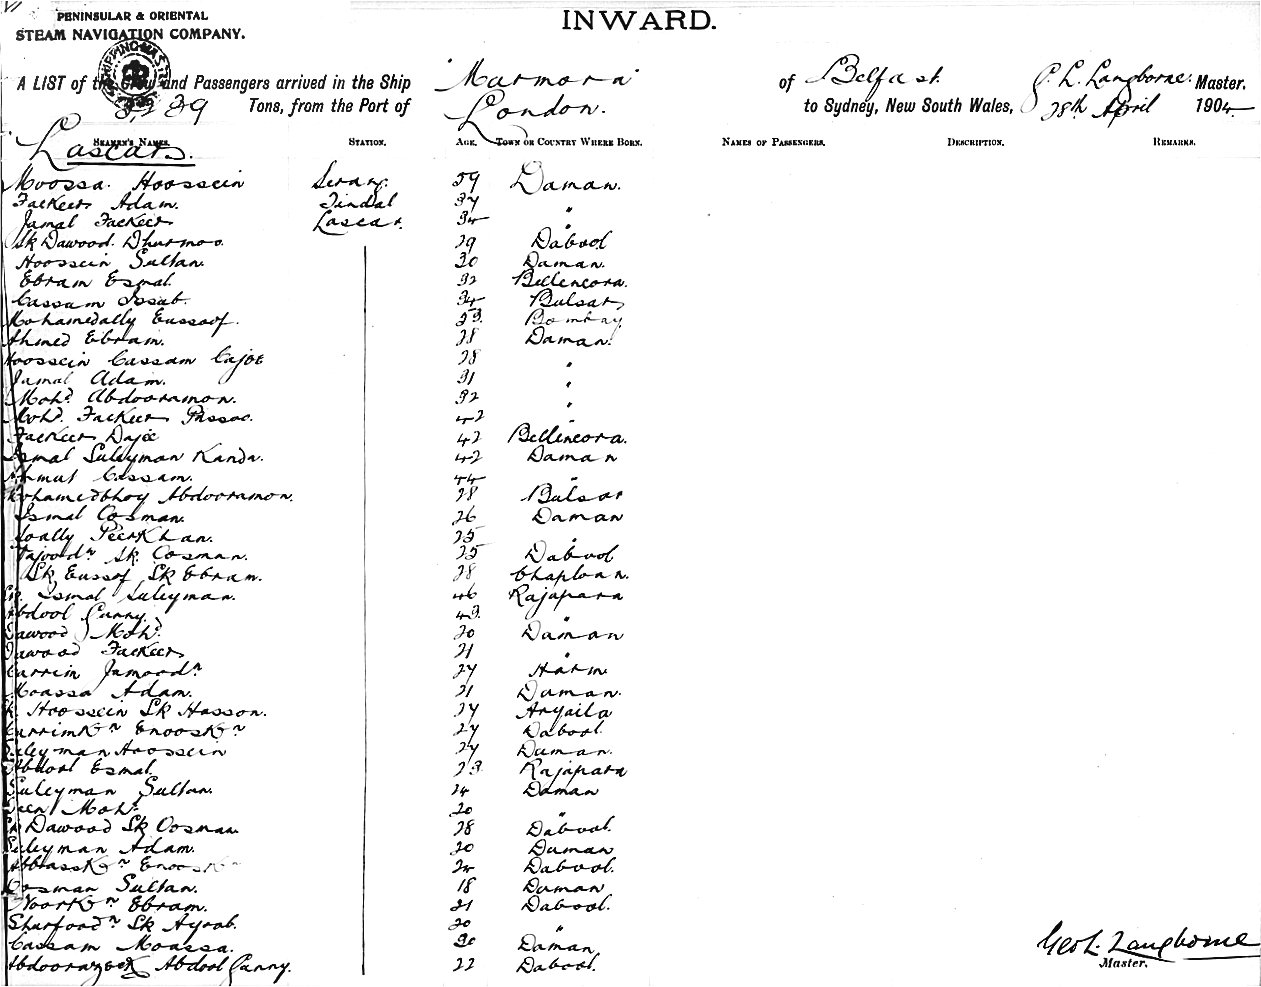 PENINSULAR & ORIENTAL
STEAM NAVIGATION COMPANY.
INWARD.
A LIST of the Crew and Passengers arrived in the Ship Marmora of Belfast. G. L. Langborne. Master.
Tons, from the Port of London. to Sydney, New South Wales, 28th April 1904
SEAMEN'S NAMES. STATION. AGE. TOWN OR COUNTRY WHERE BORN. NAMES OF PASSENGERS. DESCRIPTION. REMARKS.
Lascars.
Moossa. Hoossein Serang. 59 Daman.
Fackeer Adam. Tindal 37 "
Jamal Fackeer Lascar. 34 "
Sk Dawood. Dhurmoo. 29 Dabool
Hoossein Sultan. 30 Daman.
Ebram Esmal. 32 Billencora.
Cassam Issub. 34 Bulsar
Mohamedally Eussoof. 53. Bombay
Ahmed Ebram. 28 Daman.
Hoossein Cassam Cajoe 28 "
Jamal Adam. 31 "
Mohd. Abdooramon. 32 "
Mohd. Fackeer 42 "
Fackeer Dajee 42 Billencora.
Esmal Suleyman Kanda. 42 Daman
Ahmut Cassam. 44 "
Mohamedbhoy Abdooramon. 28 Bulsar
Ismal Cosman. 26 Daman
Peerkhan. 25 "
Tajoodn Sk. Cosman. 25 Dabool
Sk Eussof Sk Ebram. 28 Chaploon.
Sk. Esmal Suleyman. 46 Rajapara
Abdool Gunny. 43. "
Dawood Mohd. 20 Daman
Dawood Fackeer 21 "
Currim Jamoodn 27
Moossa Adam. 21 Daman.
Sk. Hoossein Sk Hasson. 27
Currimkn Enooskn 27 Dabool.
Suleyman Hoossein 27 Daman.
Abdool Esmal. 23. Rajapara
Suleyman Sultan. 24 Daman
Mohd. 20 "
Sk Dawood Sk Oosman. 28 Dabool.
Suleyman Adam. 20 Daman
Abbasskn Enooskn 24 Dabool.
Cosman Sultan. 18 Daman
Noorkn Ebram. 21 Dabool.
Sharfoodn Sk Ayoob. 20 "
Cassam Moossa. 30 Daman
Abdoorazack Abdool Gunny. 22 Dabool.
Geo L. Langborne
Master.